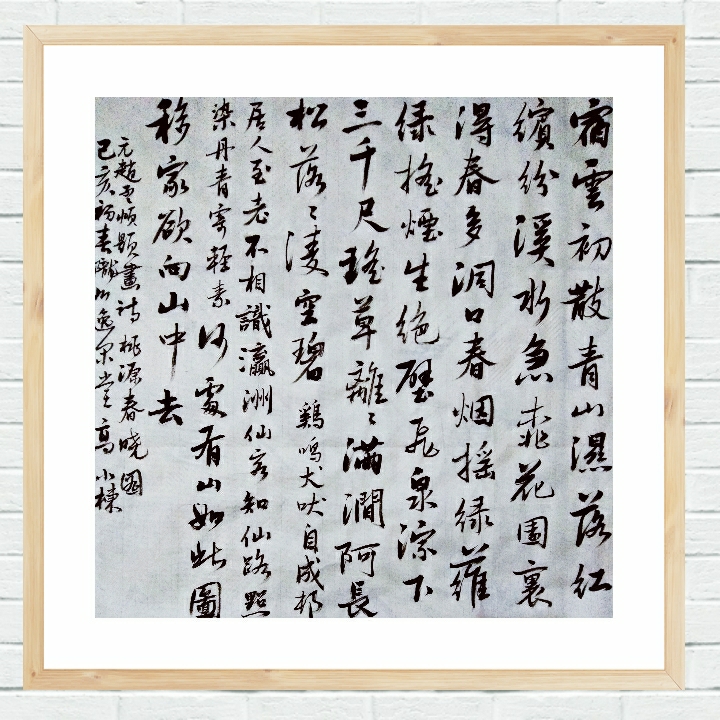 宿雲初散青山濕落紅
繽紛溪水急桃花園裏
得春多洞口春烟摇綠蘿
綠摇煙生絕壁飛泉淙下
三千尺瑤草離〻滿澗阿長
松落〻凌空碧鷄鳴犬吠自成邨
居人至老不相識瀛洲仙客知仙路點
染丹青寄輕素何處有山如此圖
移家欲向山中去
元趙孟頫題畫詩桃源春曉圖
己亥初春隴山逸泉堂高小棟